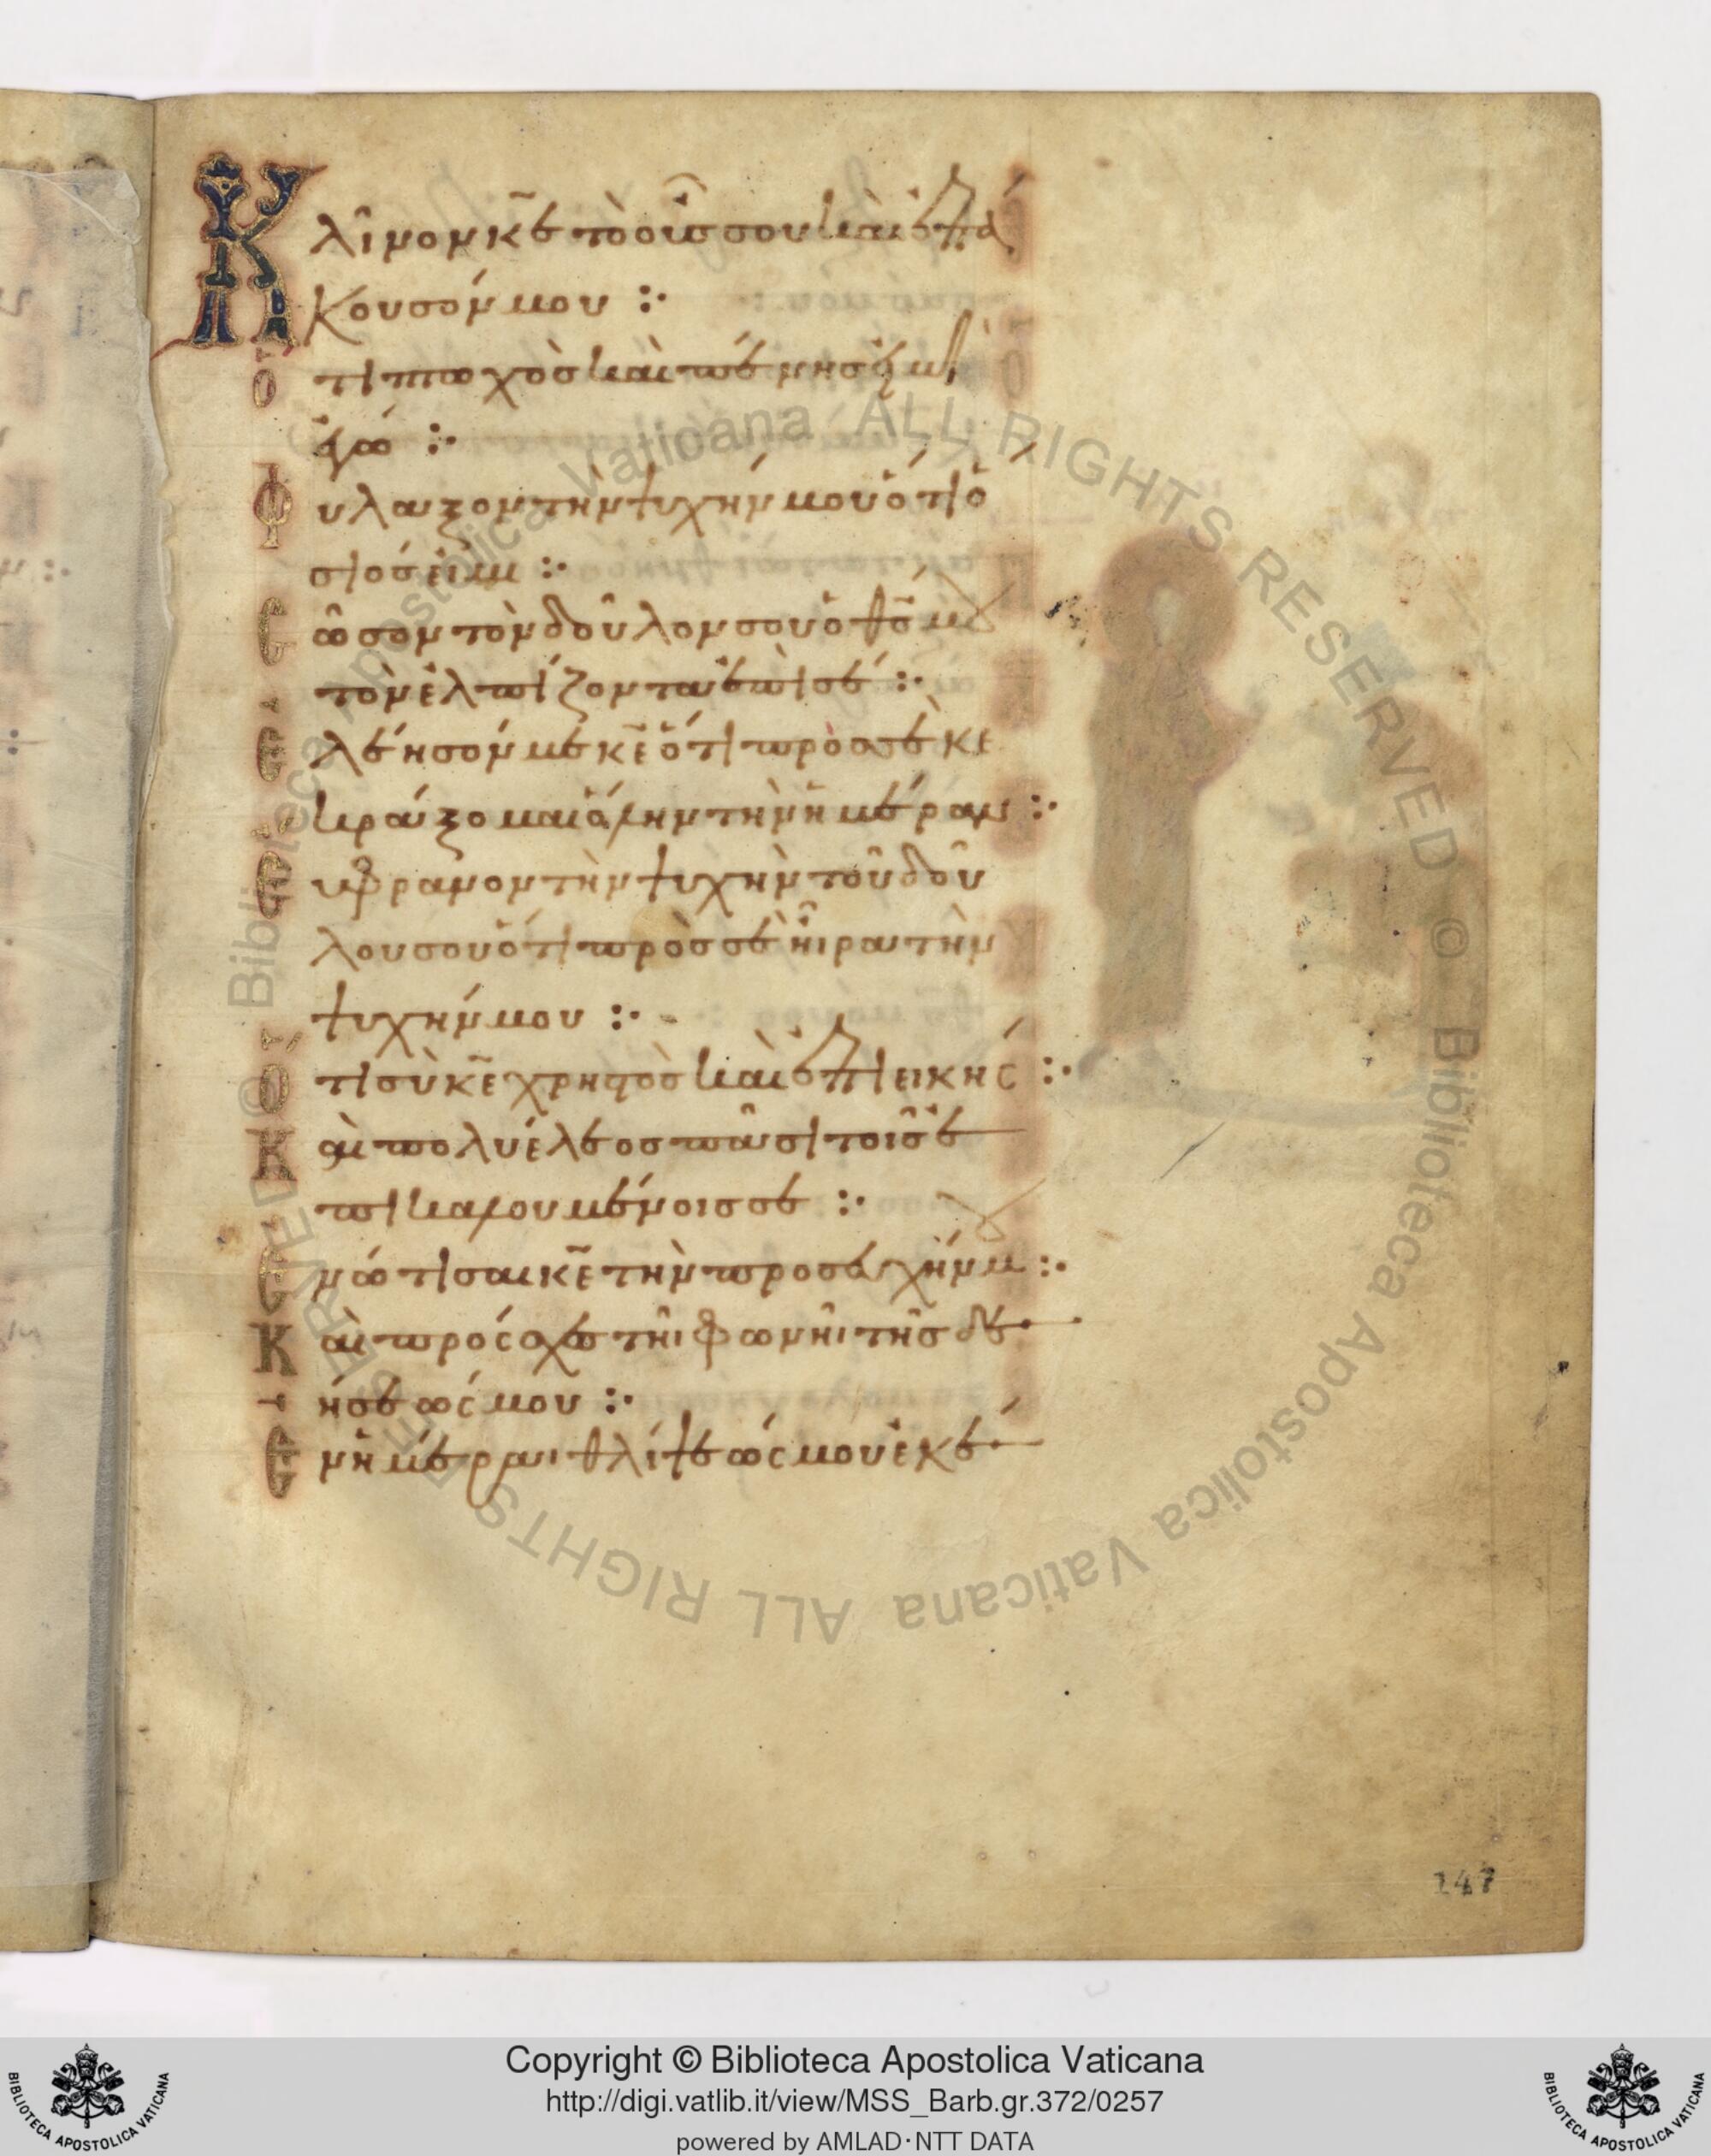 Κλῖνον κ̅ε τὸ οὖς σου καὶ ἐπά
κουσόν μου :·
ὅτι πτωχὸς καὶ πένης εἰμὶ
ἐγώ :·
Φύλαξον τὴν ψυχήν μου ὅτι ὅ
σιός εἰμι :·
Σῶσον τὸν δοῦλον σου ὁ θ̅ς μου
τὸν ἐλπίζοντα ἐπὶ σέ :·
Ἐλέησόν με κ̅ε ὅτι πρὸς σὲ κε
κράξομαι ὅλην τὴν ἡμέραν :·
Εὔφρανον τὴν ψυχὴν τοῦ δού
λου σου ὅτι πρὸς σὲ ἦιρα τὴν
ψυχήν μου :·
Ὅτι σὺ κ̅ε χρηστὸς καὶ ἐπιεικής :·
Καὶ πολυέλεος πᾶσι τοῖς ἐ
πικαλουμένοις σε :·
Ἐνώτισαι κ̅ε τὴν προσευχήν μου :·
Καὶ πρόσχες τῆι φωνῆι τῆς δε
ήσεώς μου :·
Ἐν ἡμέραι θλίψεώς μου ἐκέ
147
© Biblioteca Apostolica Vaticana ALL RIGHTS RESERVED © Biblioteca Apostolica Vaticana ALL RIGHTS RESERVED
BIBLIOTECA APOSTOLICA VATICANA
Copyright © Biblioteca Apostolica Vaticana
http://digi.vatlib.it/view/MSS_Barb.gr.372/0257
powered by AMLAD·NTT DATA
BIBLIOTECA APOSTOLICA VATICANA